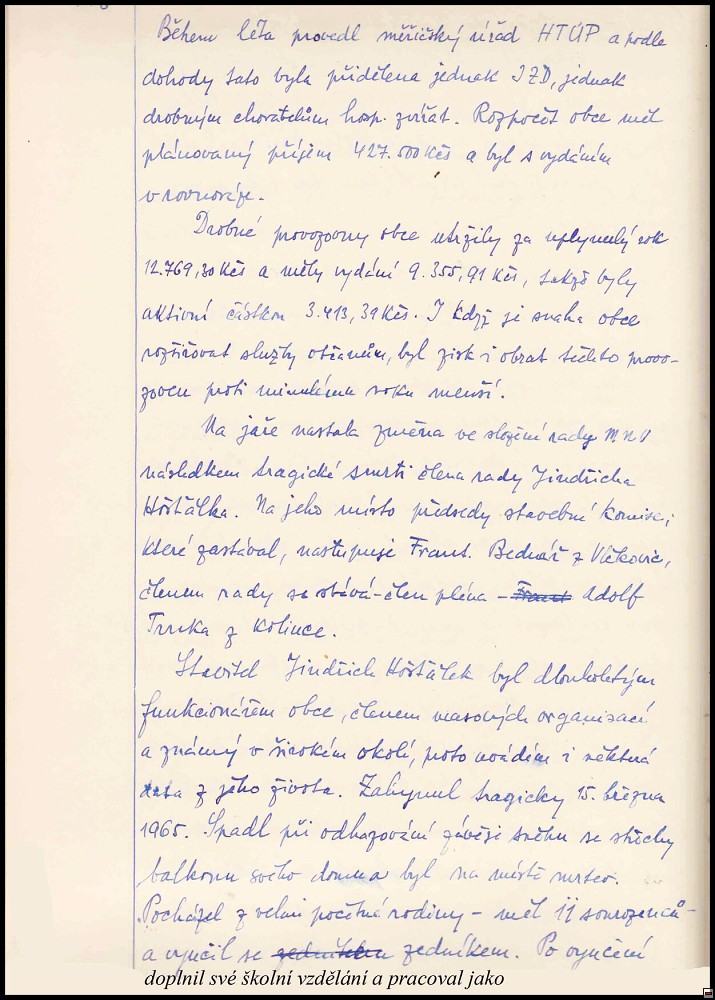 Během léta provedl měřičský úřad HTÚP a podle
dohody tato byla přidělena jednak JZD, jednak
drobným chovatelům hosp. zvířat. Rozpočet obce měl
plánovaný příjem 427.500 Kčs a byl s vydáním
v rovnováze.
Drobné provozovny obce utržily za uplynulý rok
12.769,30 Kčs a měly vydání 9.355,91 Kčs, takže byly
aktivní částkou 3.413,39 Kčs. I když je snaha obce
rozšiřovat služby občanům, byl zisk i obrat těchto provo-
zoven proti minulému roku menší.
Na jaře nastala změna ve složení rady MNV
následkem tragické smrti člena rady Jindřicha
Hošťálka. Na jeho místo předsedy stavební komise,
které zastával, nastupuje Frant. Bednář z Vlčkovic,
členem rady se stává-člen pléna - Frant Adolf
Trnka z Kolince.
Stavitel Jindřich Hošťálek byl dlouholetým
funkcionářem obce, členem masových organisací
a známý v širokém okolí, proto uvádím i některá
data z jeho života. Zahynul tragicky 15. března
1965. Spadl při odhazování závěje sněhu se střechy
balkonu svého domu a byl na místě mrtev.
Pocházel z velmi početné rodiny - měl 11 sourozenců -
a vyučil se zedníkem. Po vyučení
doplnil své školní vzdělání a pracoval jako